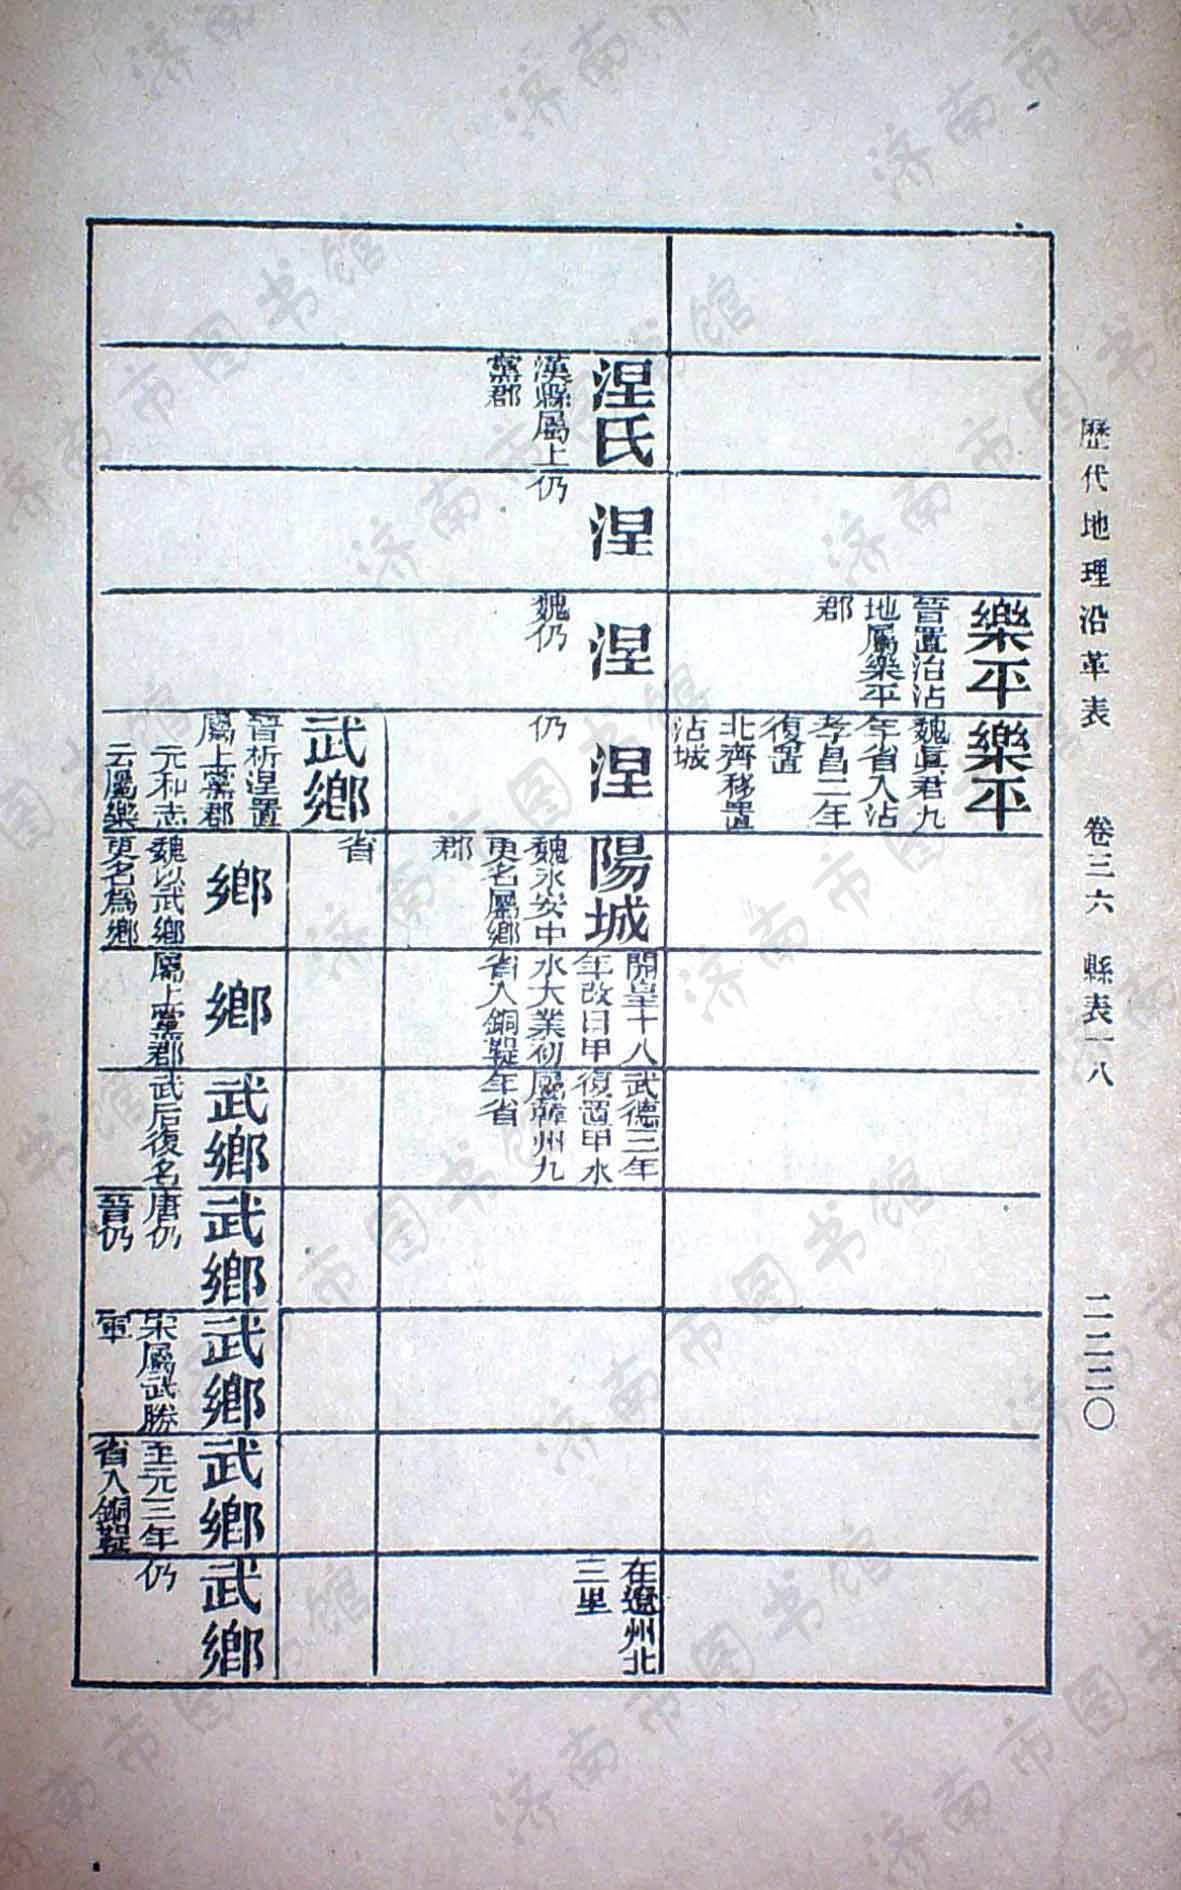 歷代地理沿革表
卷三六
縣表一八
二二二〇
樂平
晉置治沾
地屬樂平
郡
樂平
魏眞君九
年省入沾
孝昌二年
復置
北齊移置
沾城
涅氏
漢縣屬上
黨郡
涅
仍
涅
魏仍
涅
仍
陽城
魏永安中
更名屬鄉
郡
開皇十八
年改曰甲
水大業初
省入銅鞮
武德三年
復置甲水
屬韓州九
年省
在遼州北
三里
武鄉
晉析涅置
屬上黨郡
元和志
云屬樂
省
鄉
魏以武鄉
更名爲鄉
鄉
屬上黨郡
武鄉
武后復名
武鄉
唐仍
晉仍
武鄉
宋屬武勝
軍
武鄉
至元三年
省入銅鞮
武鄉
仍
济南市图书馆